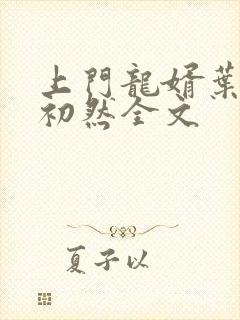 上門龍婿葉
初然全文
夏子以